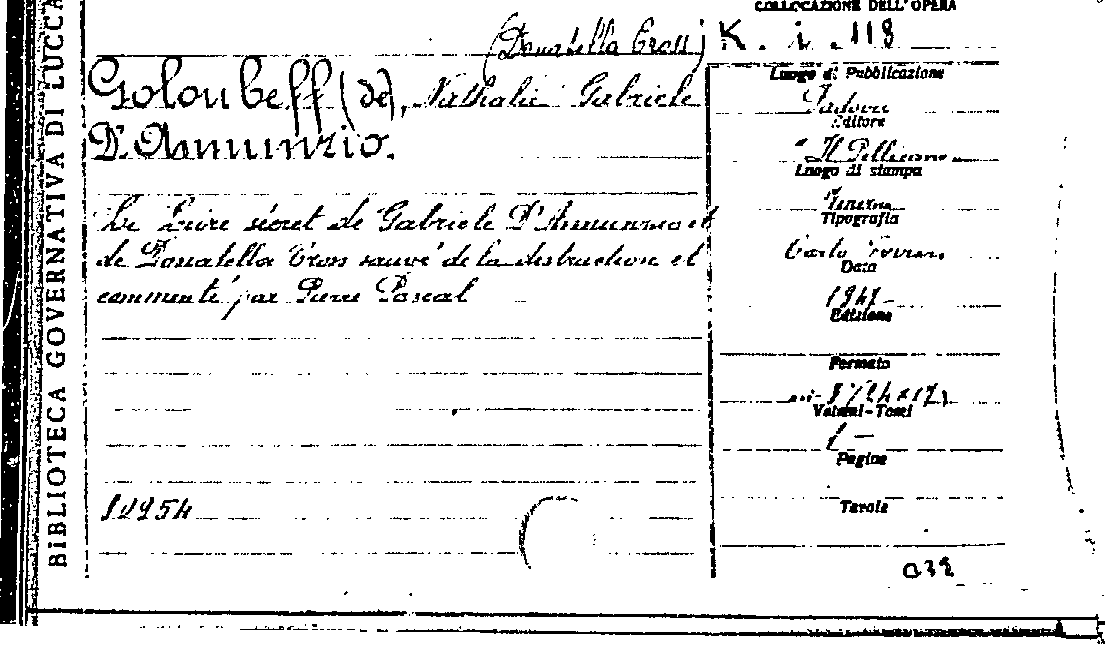 COLLOCAZIONE DELL'OPERA
(Donatella Cross) K. i. 118
Goloubeff (de), Nathalie Gabriele
D'Annunzio.
Le Livre sécret de Gabriele D'Annunzio et
de Donatella Cross sauvé de la destruction et
commenté par Pierre Pascal
10954
Luogo di Pubblicazione
Padova
Editore
"Il Pellicano"
Luogo di stampa
Tipografia
Carlo
Data
1947
Edizione
Formato
in-8 (24x17)
Volumi-Tomi
1 —
Pagine
Tavole
032
BIBLIOTECA GOVERNATIVA DI LUCCA